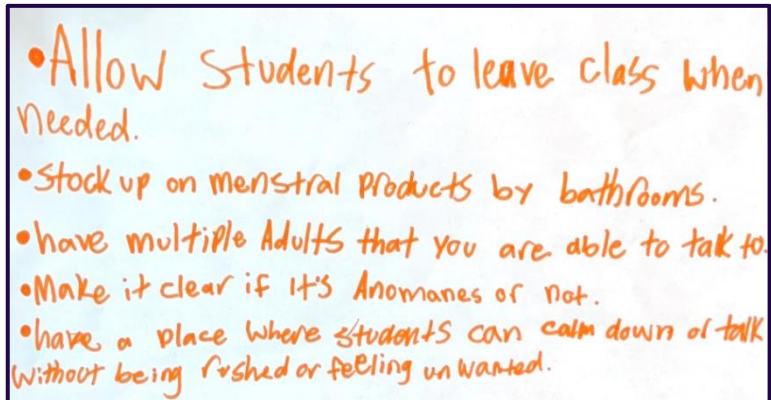 •Allow Students to leave class when
needed.
•Stock up on menstral products by bathrooms.
•have multiple Adults that you are able to talk to.
•Make it clear if it's Anomanes or not.
•have a place where students can calm down or talk
without being rushed or feeling unwanted.